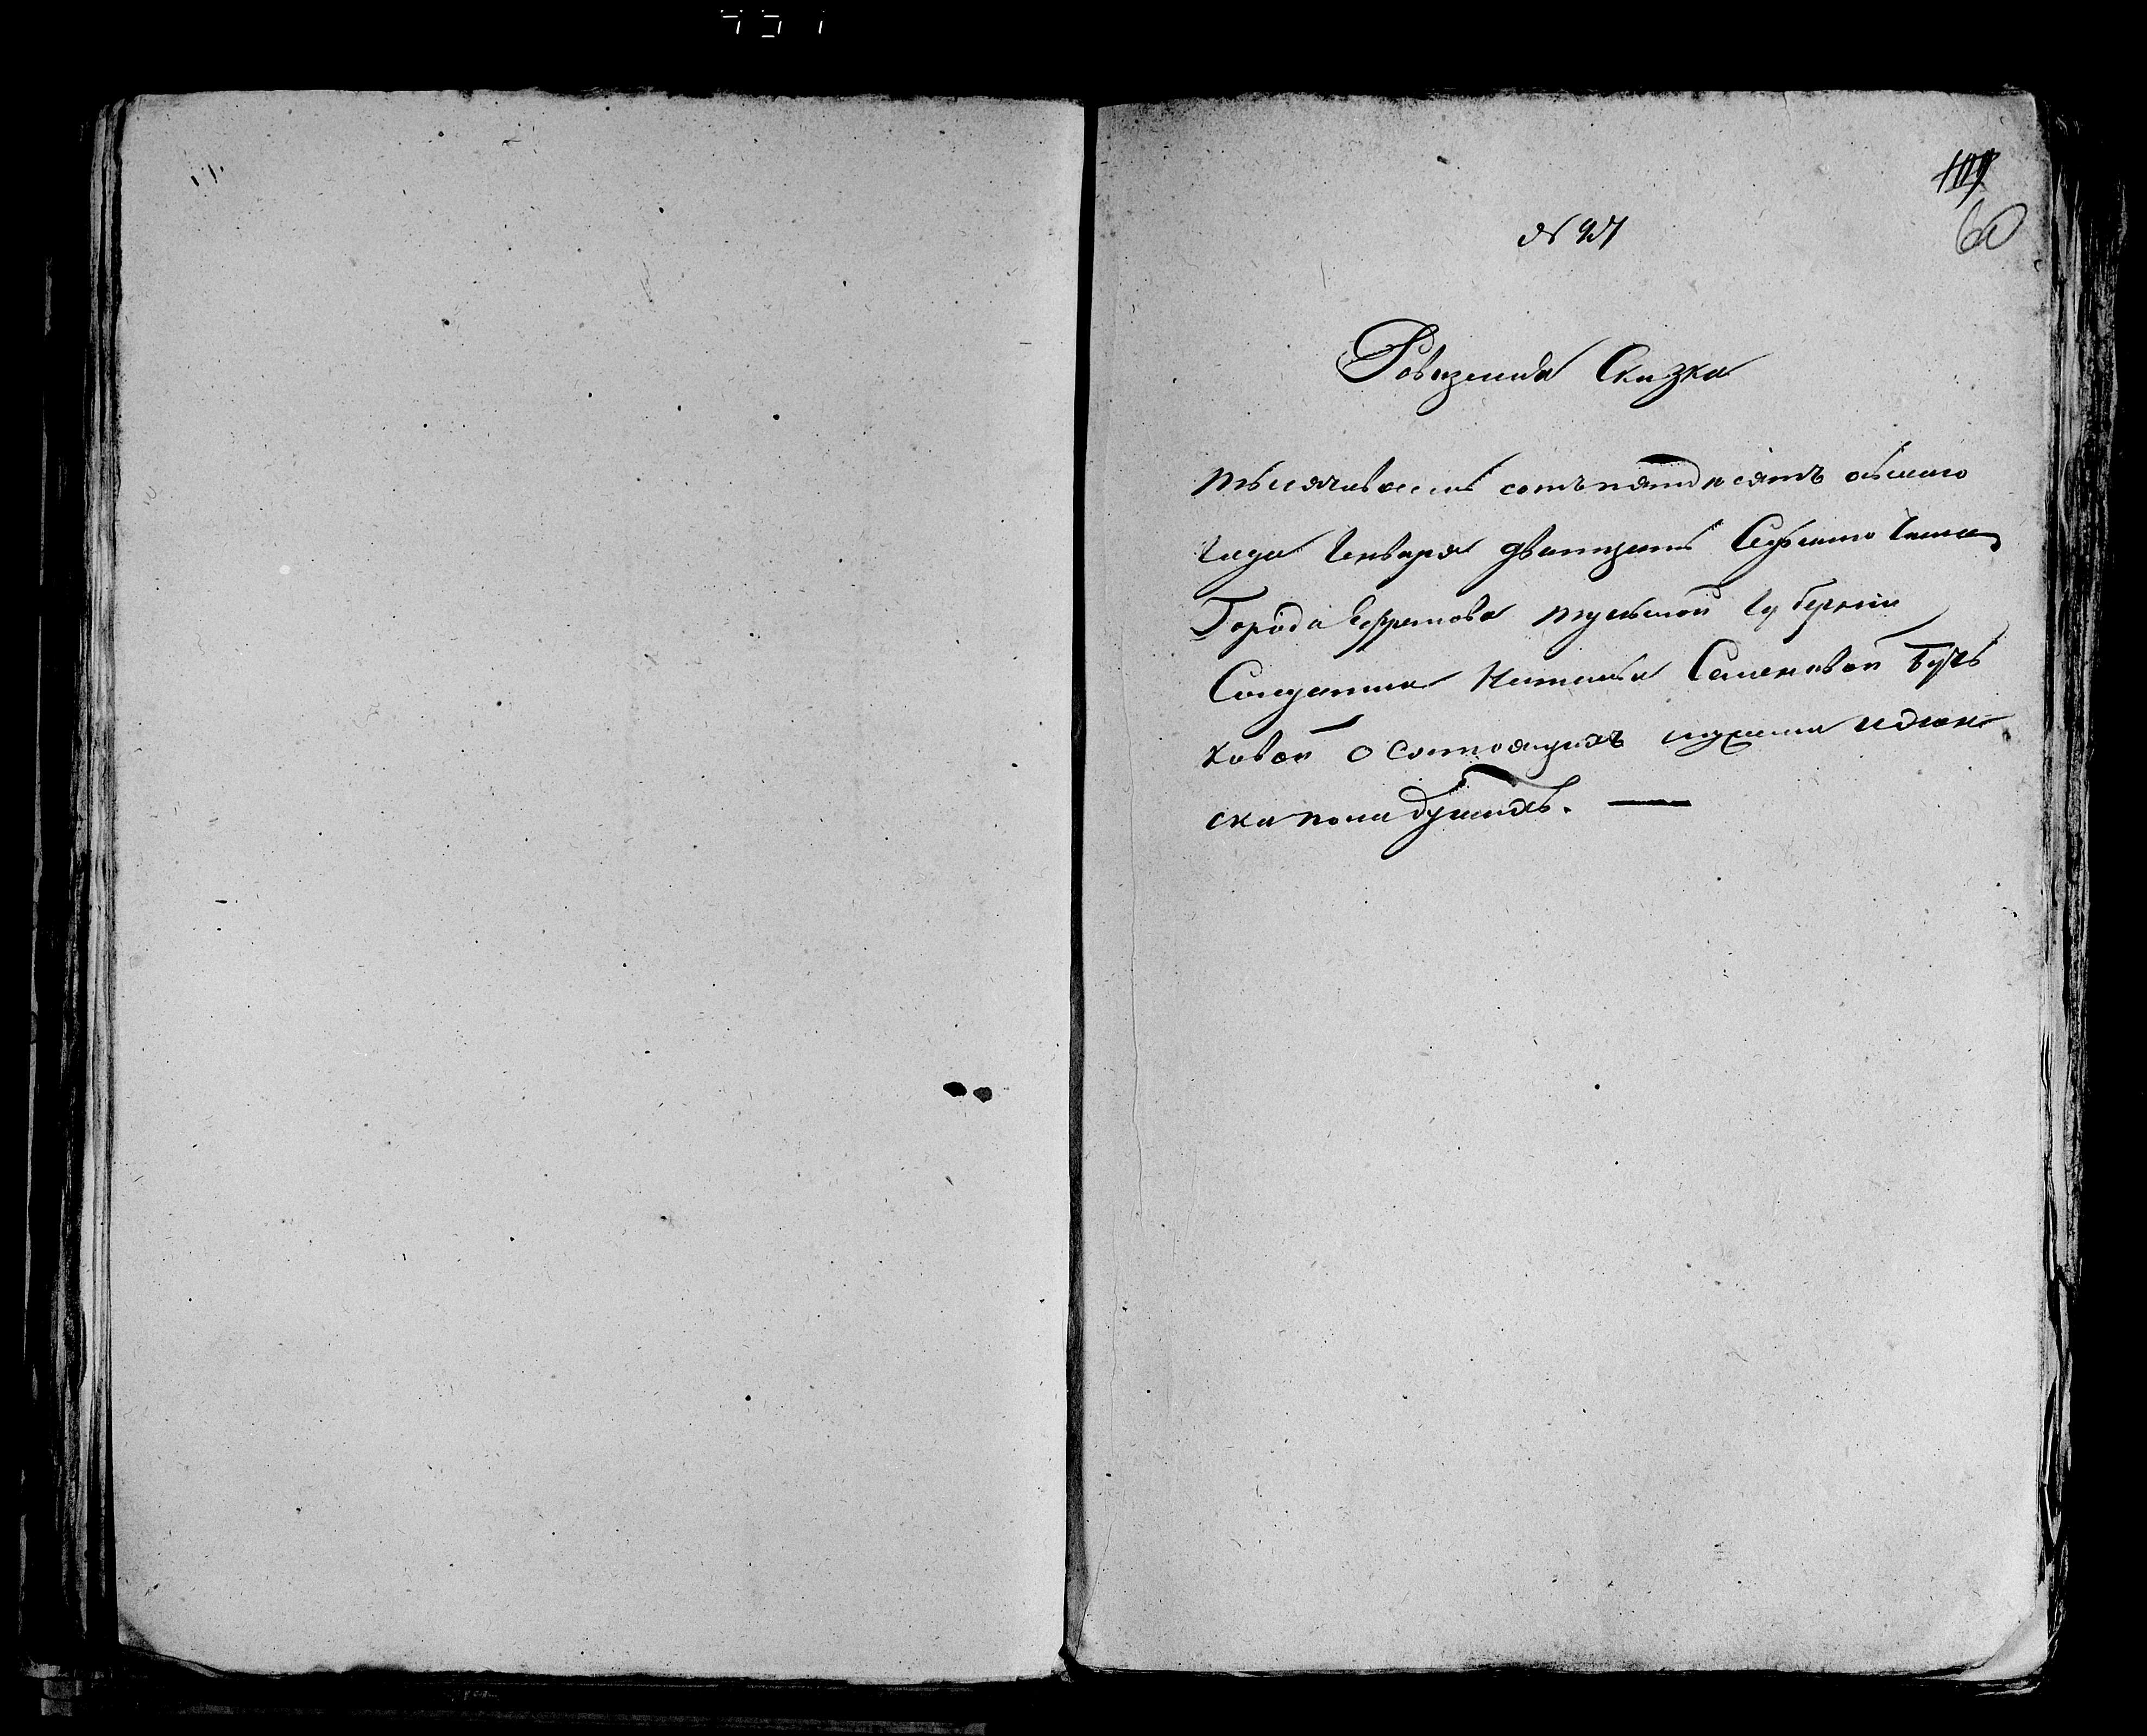 109
60
№ 27
Ревизская Сказка
тысячавосемь сотъ пятдесятъ осьмаго
Года Генваря дватцать Седьмого Числа
Города Ефремова тульской Губернии
Солдатки Натальи Семеновой Буч
ковой О Состоящихъ мужеска иженс
ска пола душахъ. —